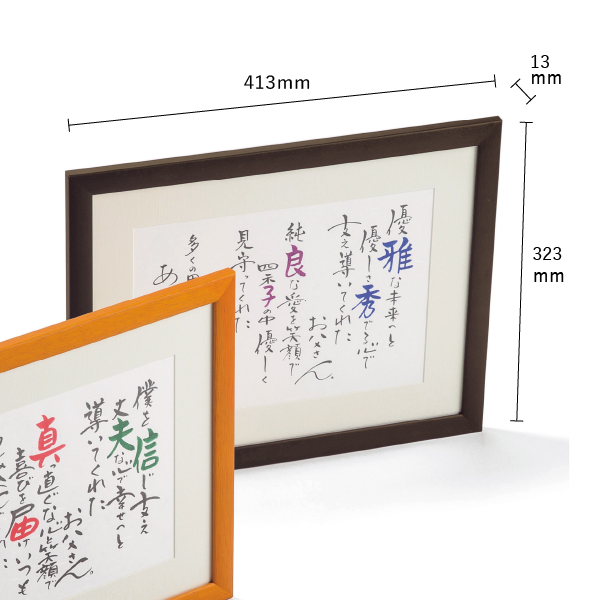 413mm
13
mm
323
mm
優雅な未来へと
優しさ秀でる心で
支え導いてくれた
お父さん。
純良な愛を笑顔で
四示子の中優しく
見守ってくれた
多くの
あ
僕を信じ支え
丈夫な心で幸せへと
導いてくれた
お父さん。
真っ直ぐな心と笑顔で
喜びを届けいつも